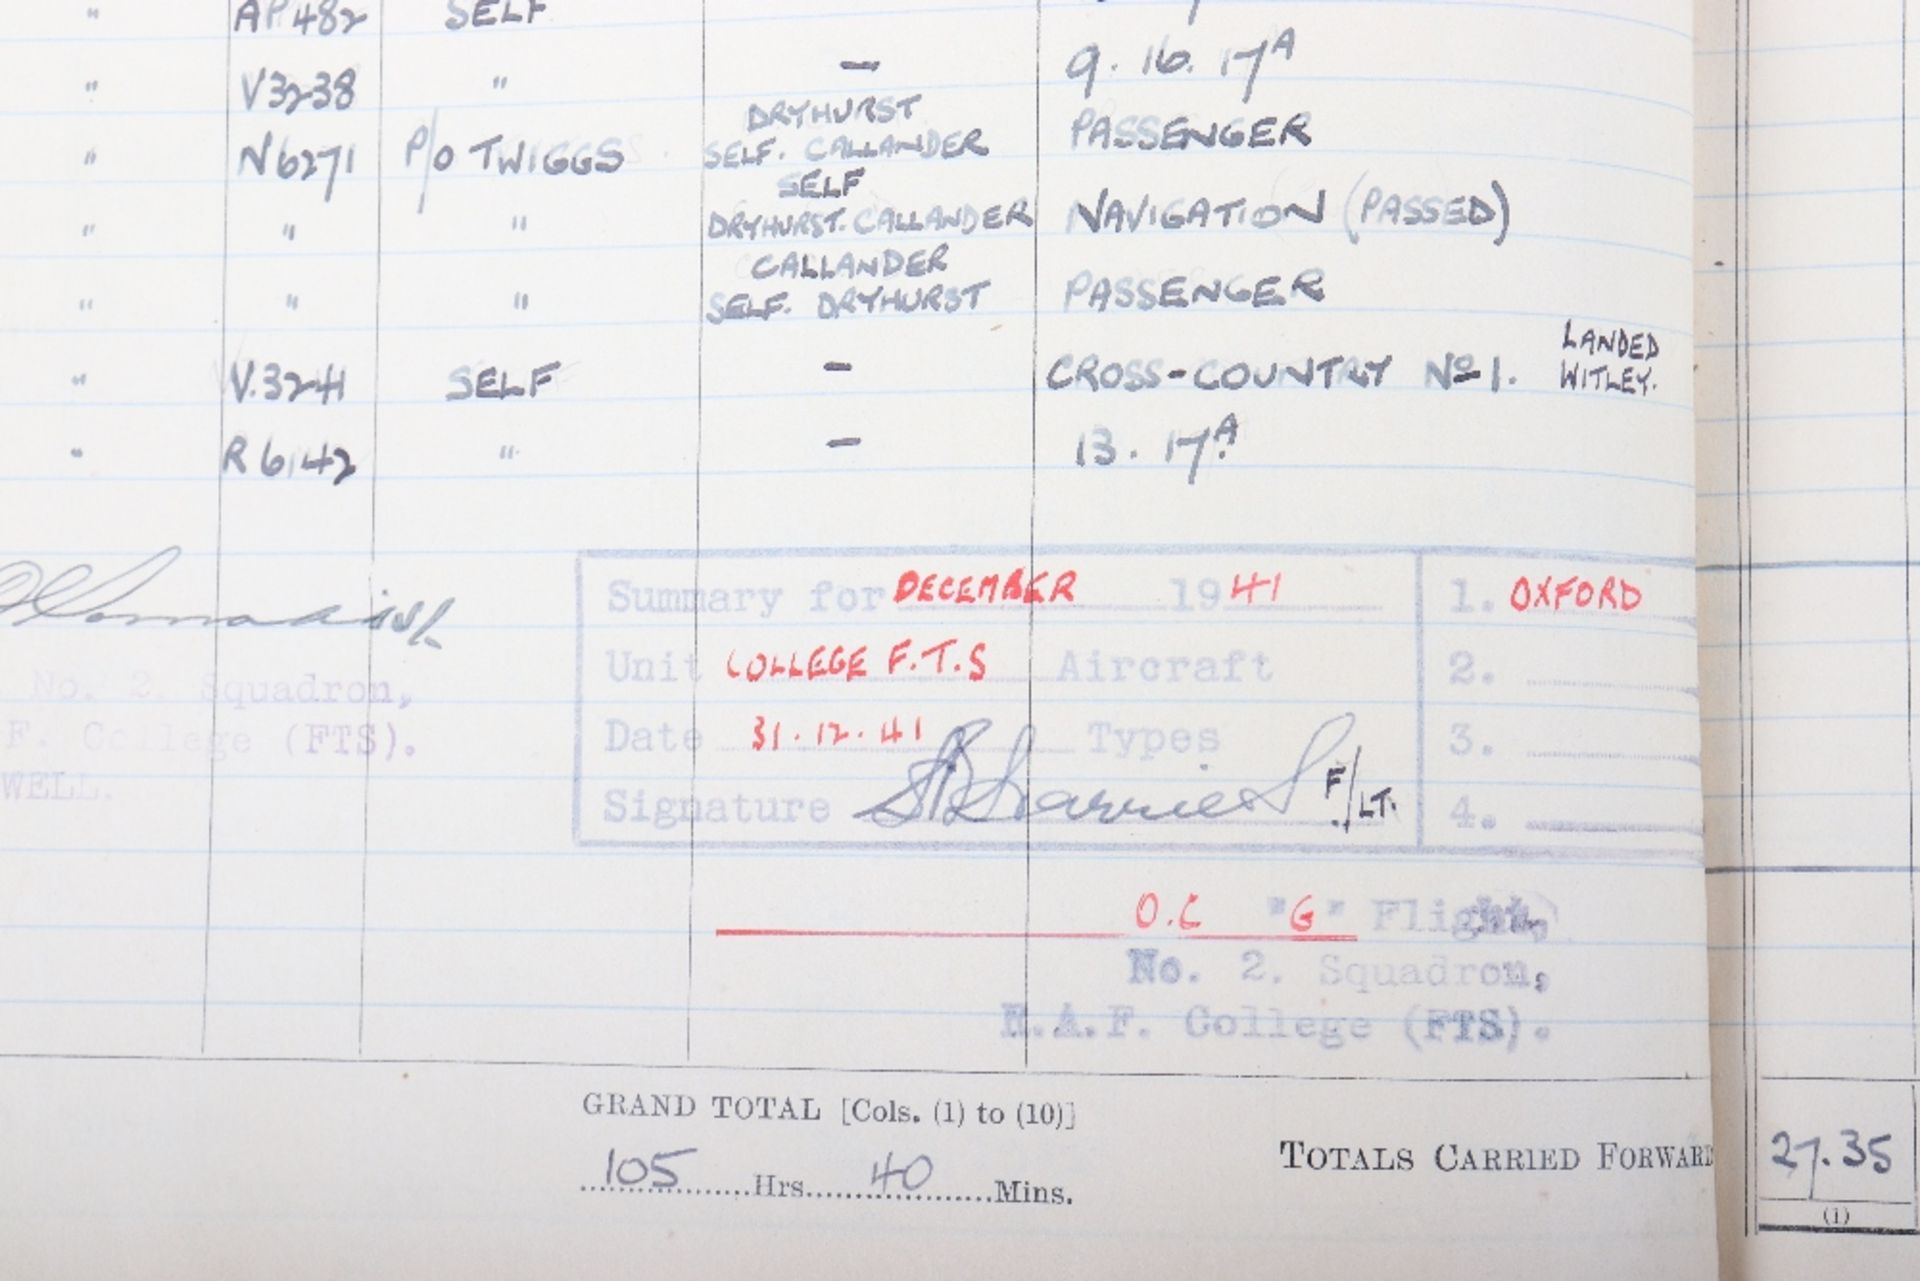 " AP.482 SELF
" V3238 " — 9. 16. 17A
DRYHURST
" N6271 P/O TWIGGS SELF. CALLANDER PASSENGER
SELF
" " " DRYHURST. CALLANDER NAVIGATION (PASSED)
CALLANDER
" " " SELF. DRYHURST PASSENGER
LANDED
" V.3241 SELF — CROSS-COUNTRY No 1. WITLEY.
" R6142 " — 13. 17A.
Summary for DECEMBER 1941 1. OXFORD
Unit COLLEGE F.T.S Aircraft 2.
No. 2. Squadron,
Date 31.12.41 Types 3.
F. College (FTS).
Signature F/LT. 4.
WELL.
O.C "G" Flight,
No. 2. Squadron,
R.A.F. College (FTS).
GRAND TOTAL [Cols. (1) to (10)]
105 Hrs. 40 Mins.
TOTALS CARRIED FORWARD 27.35
(1)